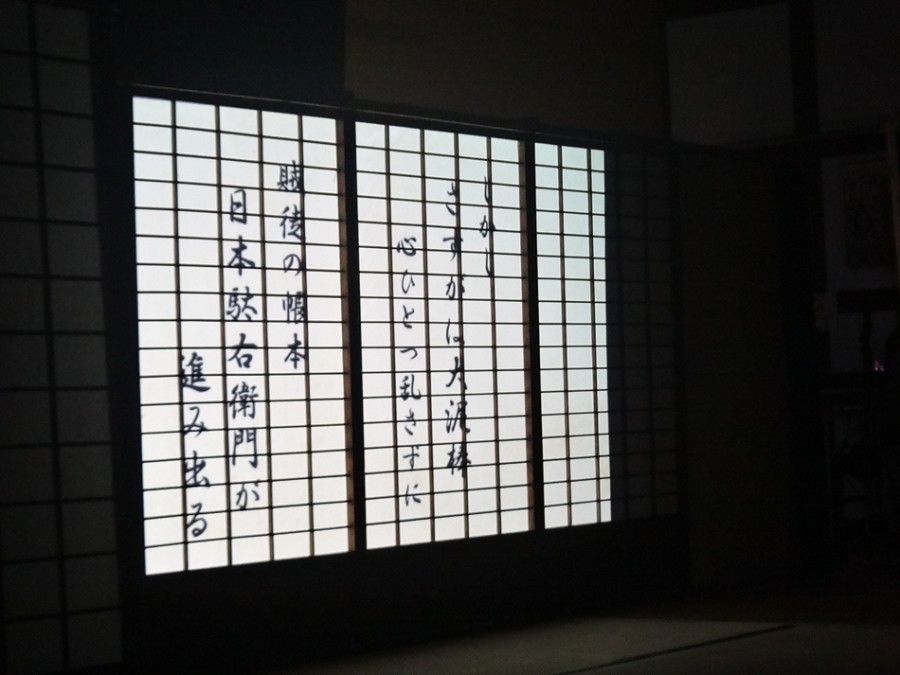 しかし
さすがは大泥棒
心ひとつ乱さずに
賊徒の帳本
日本駄右衛門が
進み出る